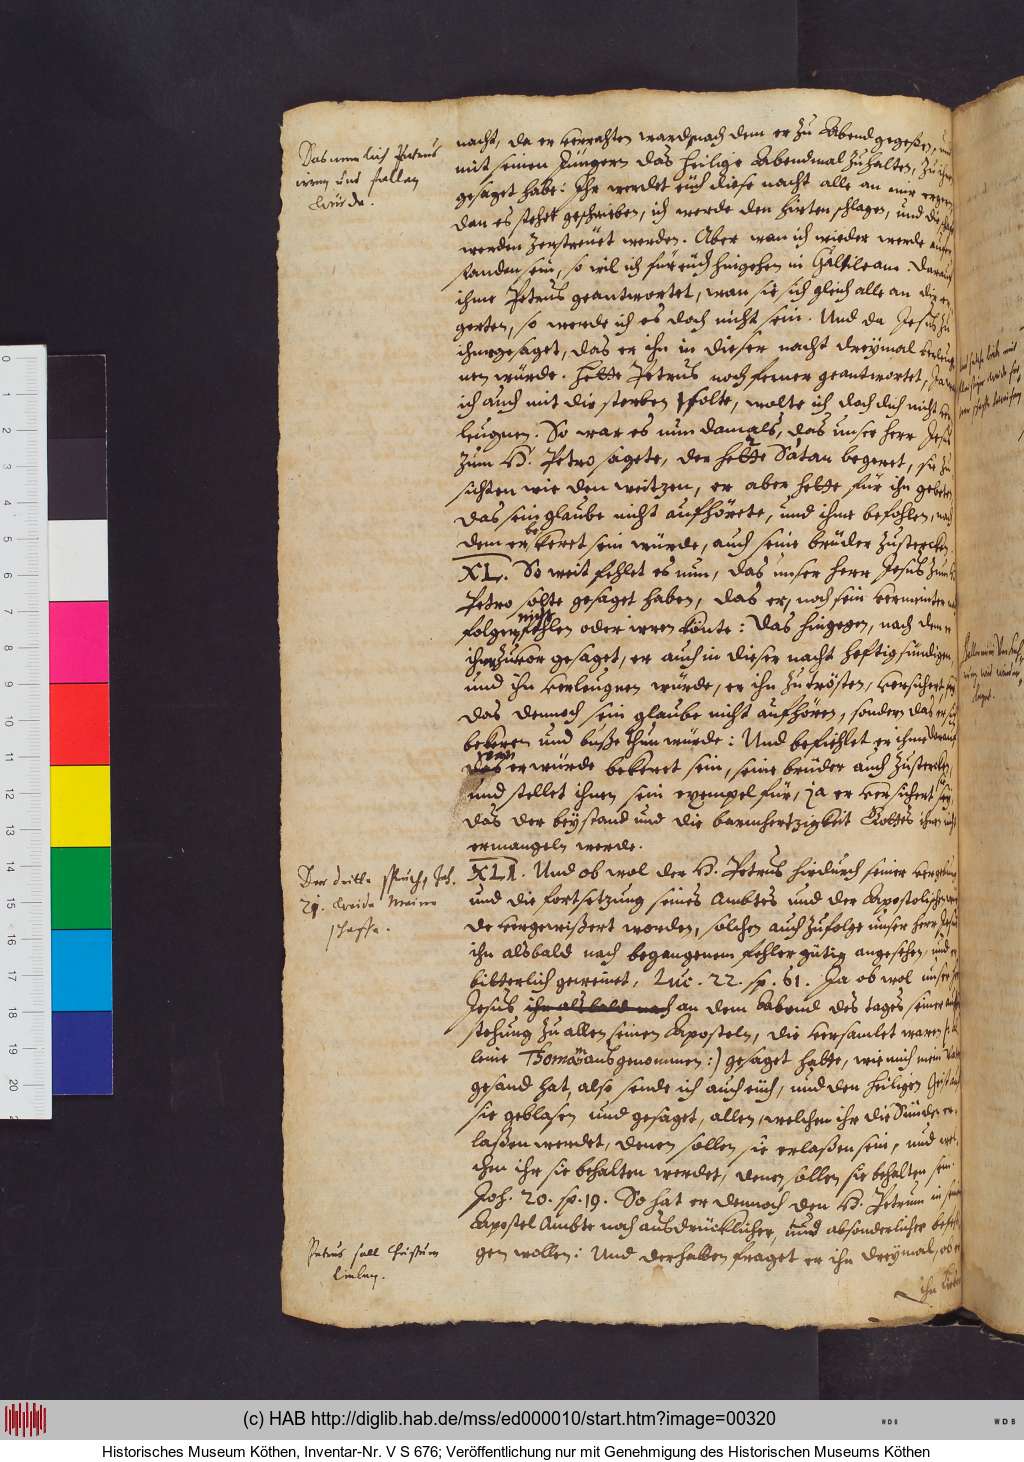 Das nemlich Petrus
irren und fallen
würde.
nacht, da er verrahten ward, nach dem er zu Abend gegeßen, und
mit seinen Jüngern das heilige Abendmal zuhalten, zu ihnen
gesaget habe: Ihr werdet euch diese nacht alle an mir ergern
dan es stehet geschrieben, ich werde den hirten schlagen, und die schafe
werden zerstreuet werden. Aber wan ich wieder werde aufer
standen sein, so wil ich für euch hingehen in Galileam: Darauf
ihme Petrus geantwortet, wan sie sich gleich alle an dir er
gerten, so werde ich es doch nicht sein. Und da Jesus zu
ihme gesaget, das er ihn in dieser nacht dreymal verleug
nen würde. hette Petrus noch ferner geantwortet, Ja wan
ich auch mit dir sterben solte, wolte ich doch dich nicht ver
leugnen. So war es nun damals, das unser herr Jesus
zum H. Petro sagete, der Satan hette begeret, sie zu
sichten wie den weitzen, er aber hette für ihn gebeten
das sein glaube nicht aufhörete, und ihme befohlen, nach
dem er bekeret sein würde, auch seine brüder zustercken.
XL. So weit fehlet es nun, das unser herr Jesus zum H.
Petro solte gesaget haben, das er, noch sein vermeinter nach
folger, nicht fehlen oder irren könte: Das hingegen, nach dem er
ihm zuvor gesaget, er auch in dieser nacht heftig sündigen,
und ihn verleugnen würde, er ihn zutrösten, versichert,
das dennoch sein glaube nicht aufhören, sondern das er sich
bekeren und buße thun würde: Und befiehlet er ihme darauf
wan er würde bekeret sein, seine brüder auch zustercken,
und stellet ihnen sein exempel für, ja er versichert sie,
das der beystand und die barmhertzigkeit Gottes ihnen nicht
ermangeln werde.
Der dritte spruch, Joh.
21. weide Meine
schaffe.
XLI. Und ob wol der H. Petrus hierdurch seiner vergebung
und die fortsetzung seines Ambtes und der Apostolischen wür
de vergewißert worden, solchen auch zufolge unser herr Jesus
ihn alsbald nach begangenem fehler gütig angesehen, und er
bitterlich geweinet, Luc. 22. sp. 61. Ja ob wol unser herr
Jesus ihn alsbald nach an dem Abend des tages seiner aufer
stehung zu allen seinen Aposteln, die versamlet waren
leine Thomas ausgenommen:) gesaget hatte, wie mich mein Vater
gesand hat, also sende ich auch euch, und den heiligen Geist auf
sie geblasen und gesaget, allen, welchen ihr die Sünde er-
laßen werdet, denen sollen sie erlaßen sein, und wel-
chen ihr sie behalten werdet, denen sollen sie behalten sein.
Joh. 20. sp. 19. So hat er dennoch den H. Petrum in seinem
Apostel Ambte noch ausdrücklicher, und absonderlicher befesti
gen wollen: Und derhalben fraget er ihn dreymal, ob er
Petrus soll Christum
lieben.
ihn liebe
(c) HAB http://diglib.hab.de/mss/ed000010/start.htm?image=00320
Historisches Museum Köthen, Inventar-Nr. V S 676; Veröffentlichung nur mit Genehmigung des Historischen Museums Köthen